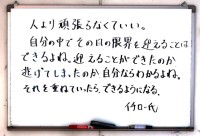 人より頑張らなくていい。
自分の中でその日の限界を迎えることは
できるよね。迎えることができたのか
逃げてしまったのか自分ならわかるよね。
それを重ねていったら、できるようになる。
イチロー氏